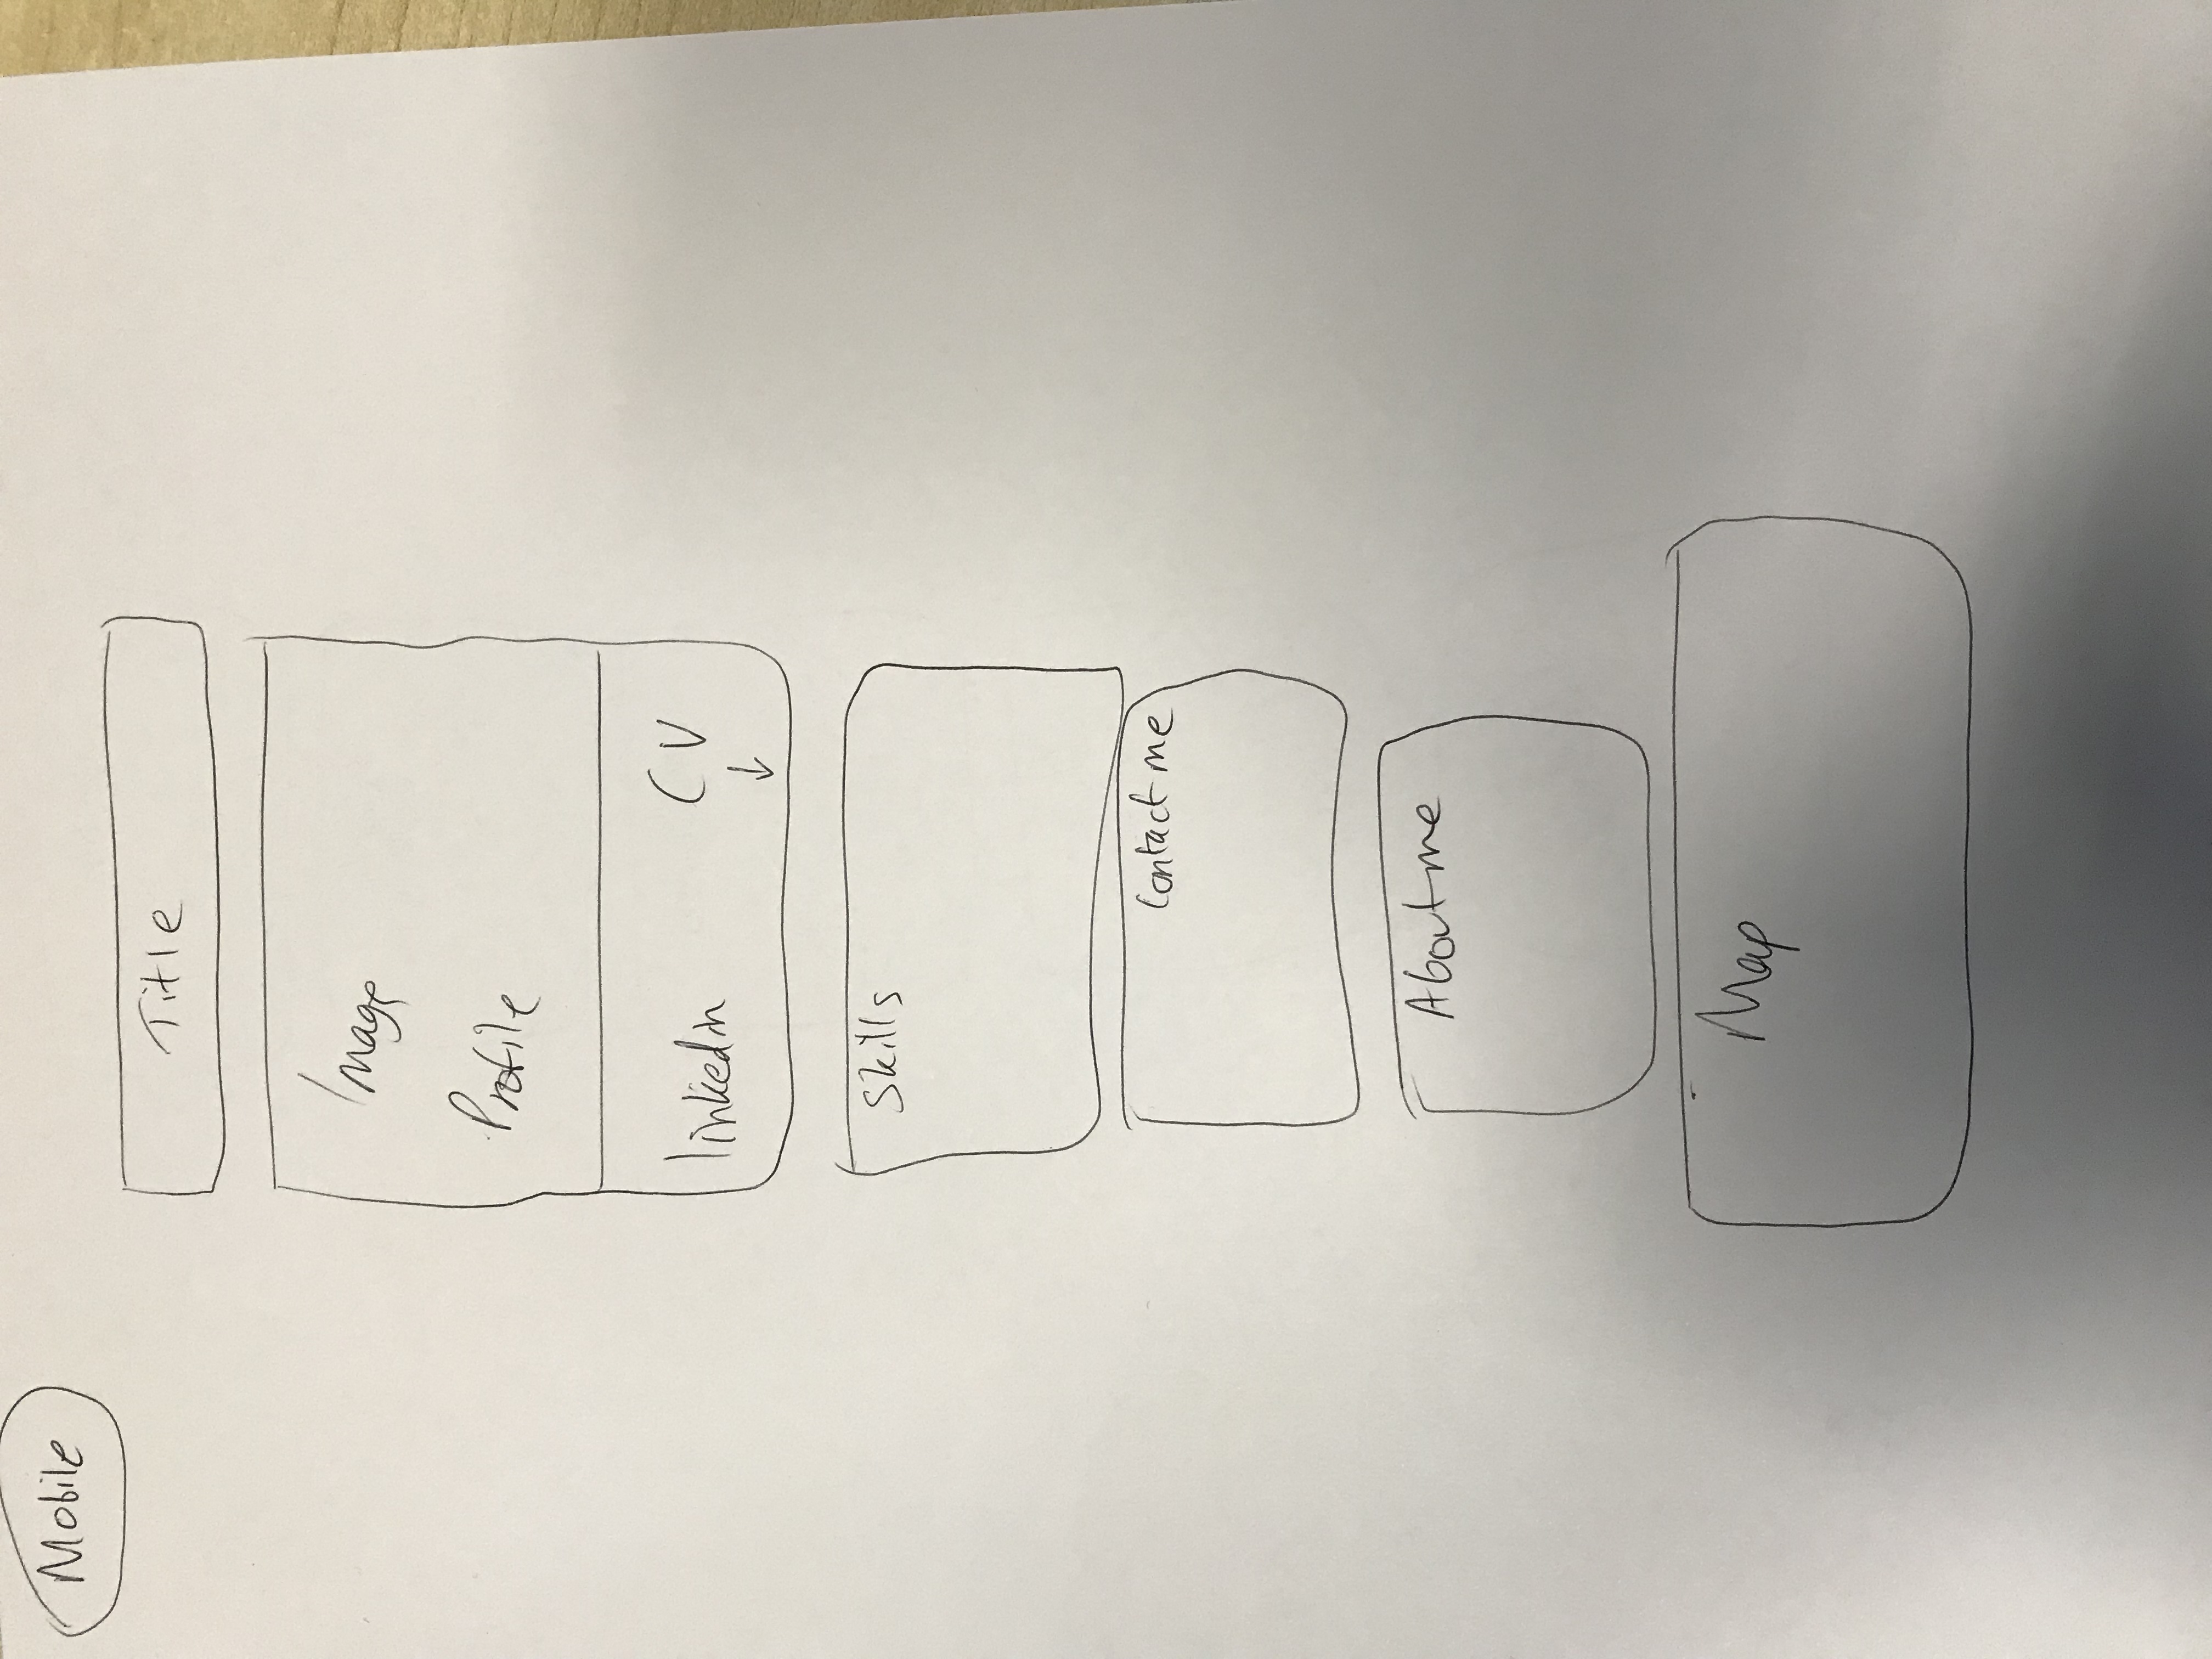 Mobile
Title
Image
Profile
linkedin CV
Skills
Contact me
About me
Map